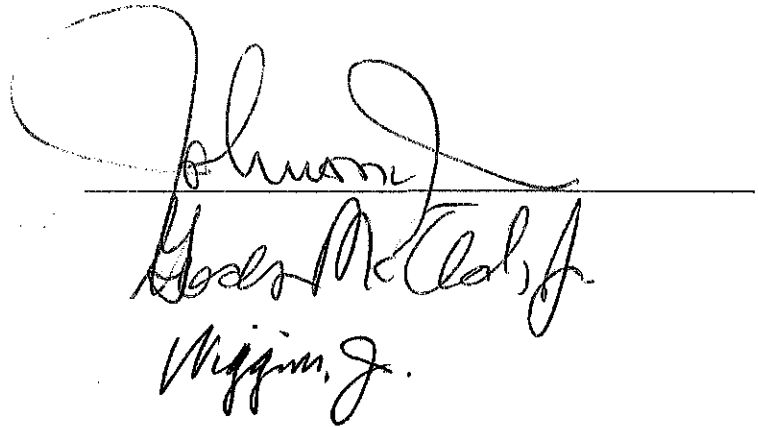 Johnson, J
Gordon McCloud, J.
Wiggins, J.